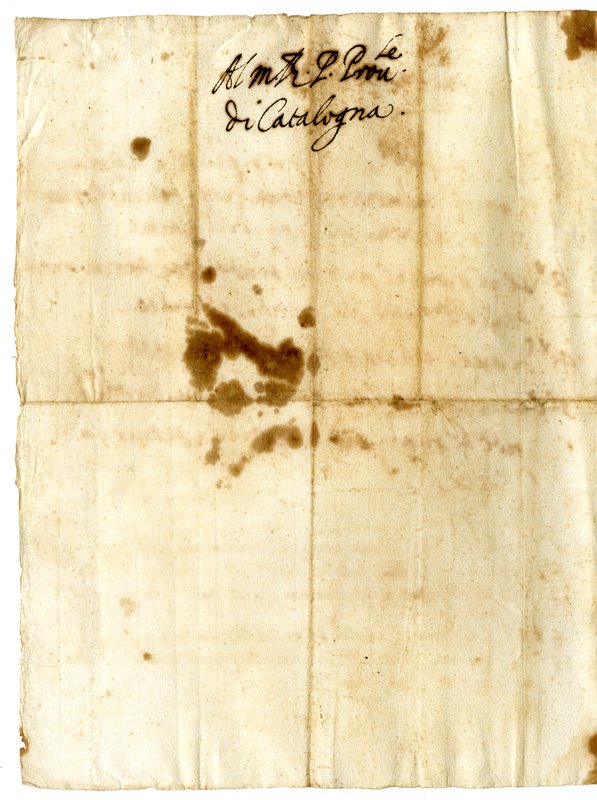 Al m R. P. Prou.le
di Catalogna.